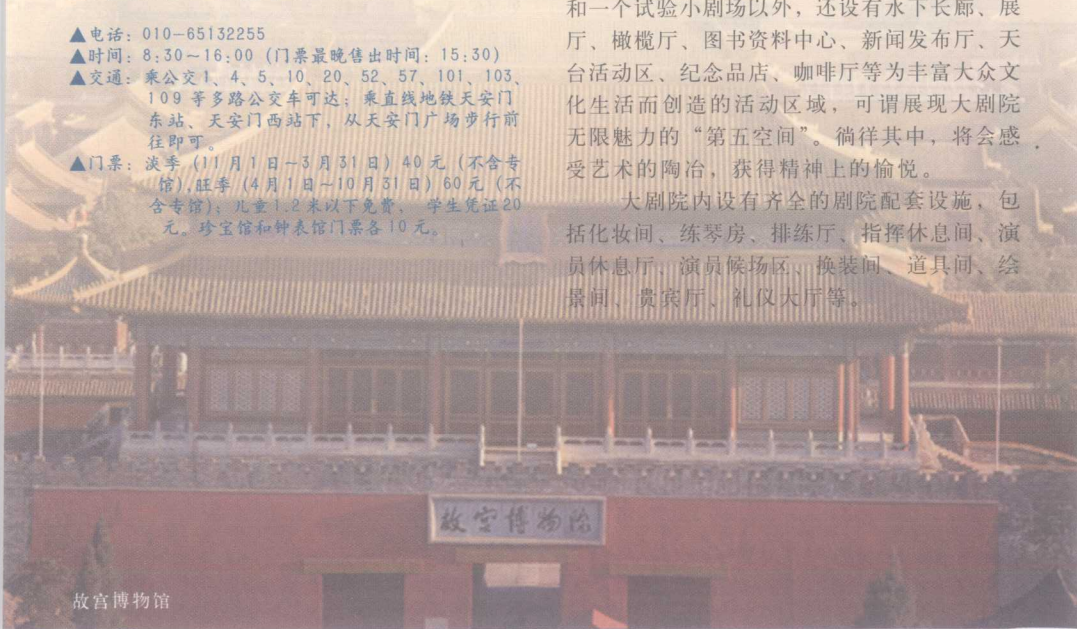 ▲电话：010-65132255
▲时间：8:30～16:00（门票最晚售出时间：15:30）
▲交通：乘公交1、4、5、10、20、52、57、101、103、
109等多路公交车可达；乘直线地铁天安门
东站、天安门西站下，从天安门广场步行前
往即可。
▲门票：淡季（11月1日～3月31日）40元（不含专
馆），旺季（4月1日～10月31日）60元（不
含专馆）；儿童1.2米以下免费， 学生凭证20
元。珍宝馆和钟表馆门票各10元。
和一个试验小剧场以外，还设有水下长廊、展
厅、橄榄厅、图书资料中心、新闻发布厅、天
台活动区、纪念品店、咖啡厅等为丰富大众文
化生活而创造的活动区域，可谓展现大剧院
无限魅力的“第五空间”。徜徉其中，将会感
受艺术的陶冶，获得精神上的愉悦。
大剧院内设有齐全的剧院配套设施，包
括化妆间、练琴房、排练厅、指挥休息间、演
员休息厅、演员候场区、换装间、道具间、绘
景间、贵宾厅、礼仪大厅等。
故宫博物院
故宫博物馆